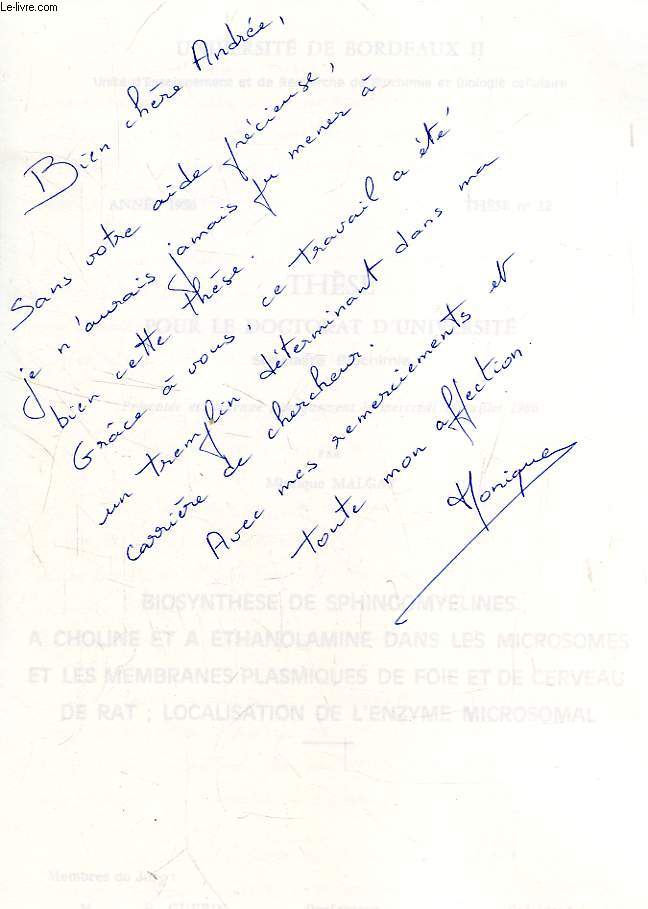 Le-livre.com
UNIVERSITÉ DE BORDEAUX II
Unité d'Enseignement et de Recherche de Biochimie et Biologie cellulaire
Bien chère Andrée,
Sans votre aide précieuse,
je n'aurais jamais pu mener à
bien cette thèse.
Grâce à vous, ce travail a été
un tremplin déterminant dans ma
carrière de chercheur.
Avec mes remerciements et
toute mon affection.
Monique
ANNÉE THÈSE n° 12
THÈSE
POUR LE DOCTORAT D'UNIVERSITÉ
PAR
BIOSYNTHESE DE SPHINGOMYELINES
A CHOLINE ET A ETHANOLAMINE DANS LES MICROSOMES
ET LES MEMBRANES PLASMIQUES DE FOIE ET DE CERVEAU
DE RAT ; LOCALISATION DE L'ENZYME MICROSOMAL
Membres du Jury :